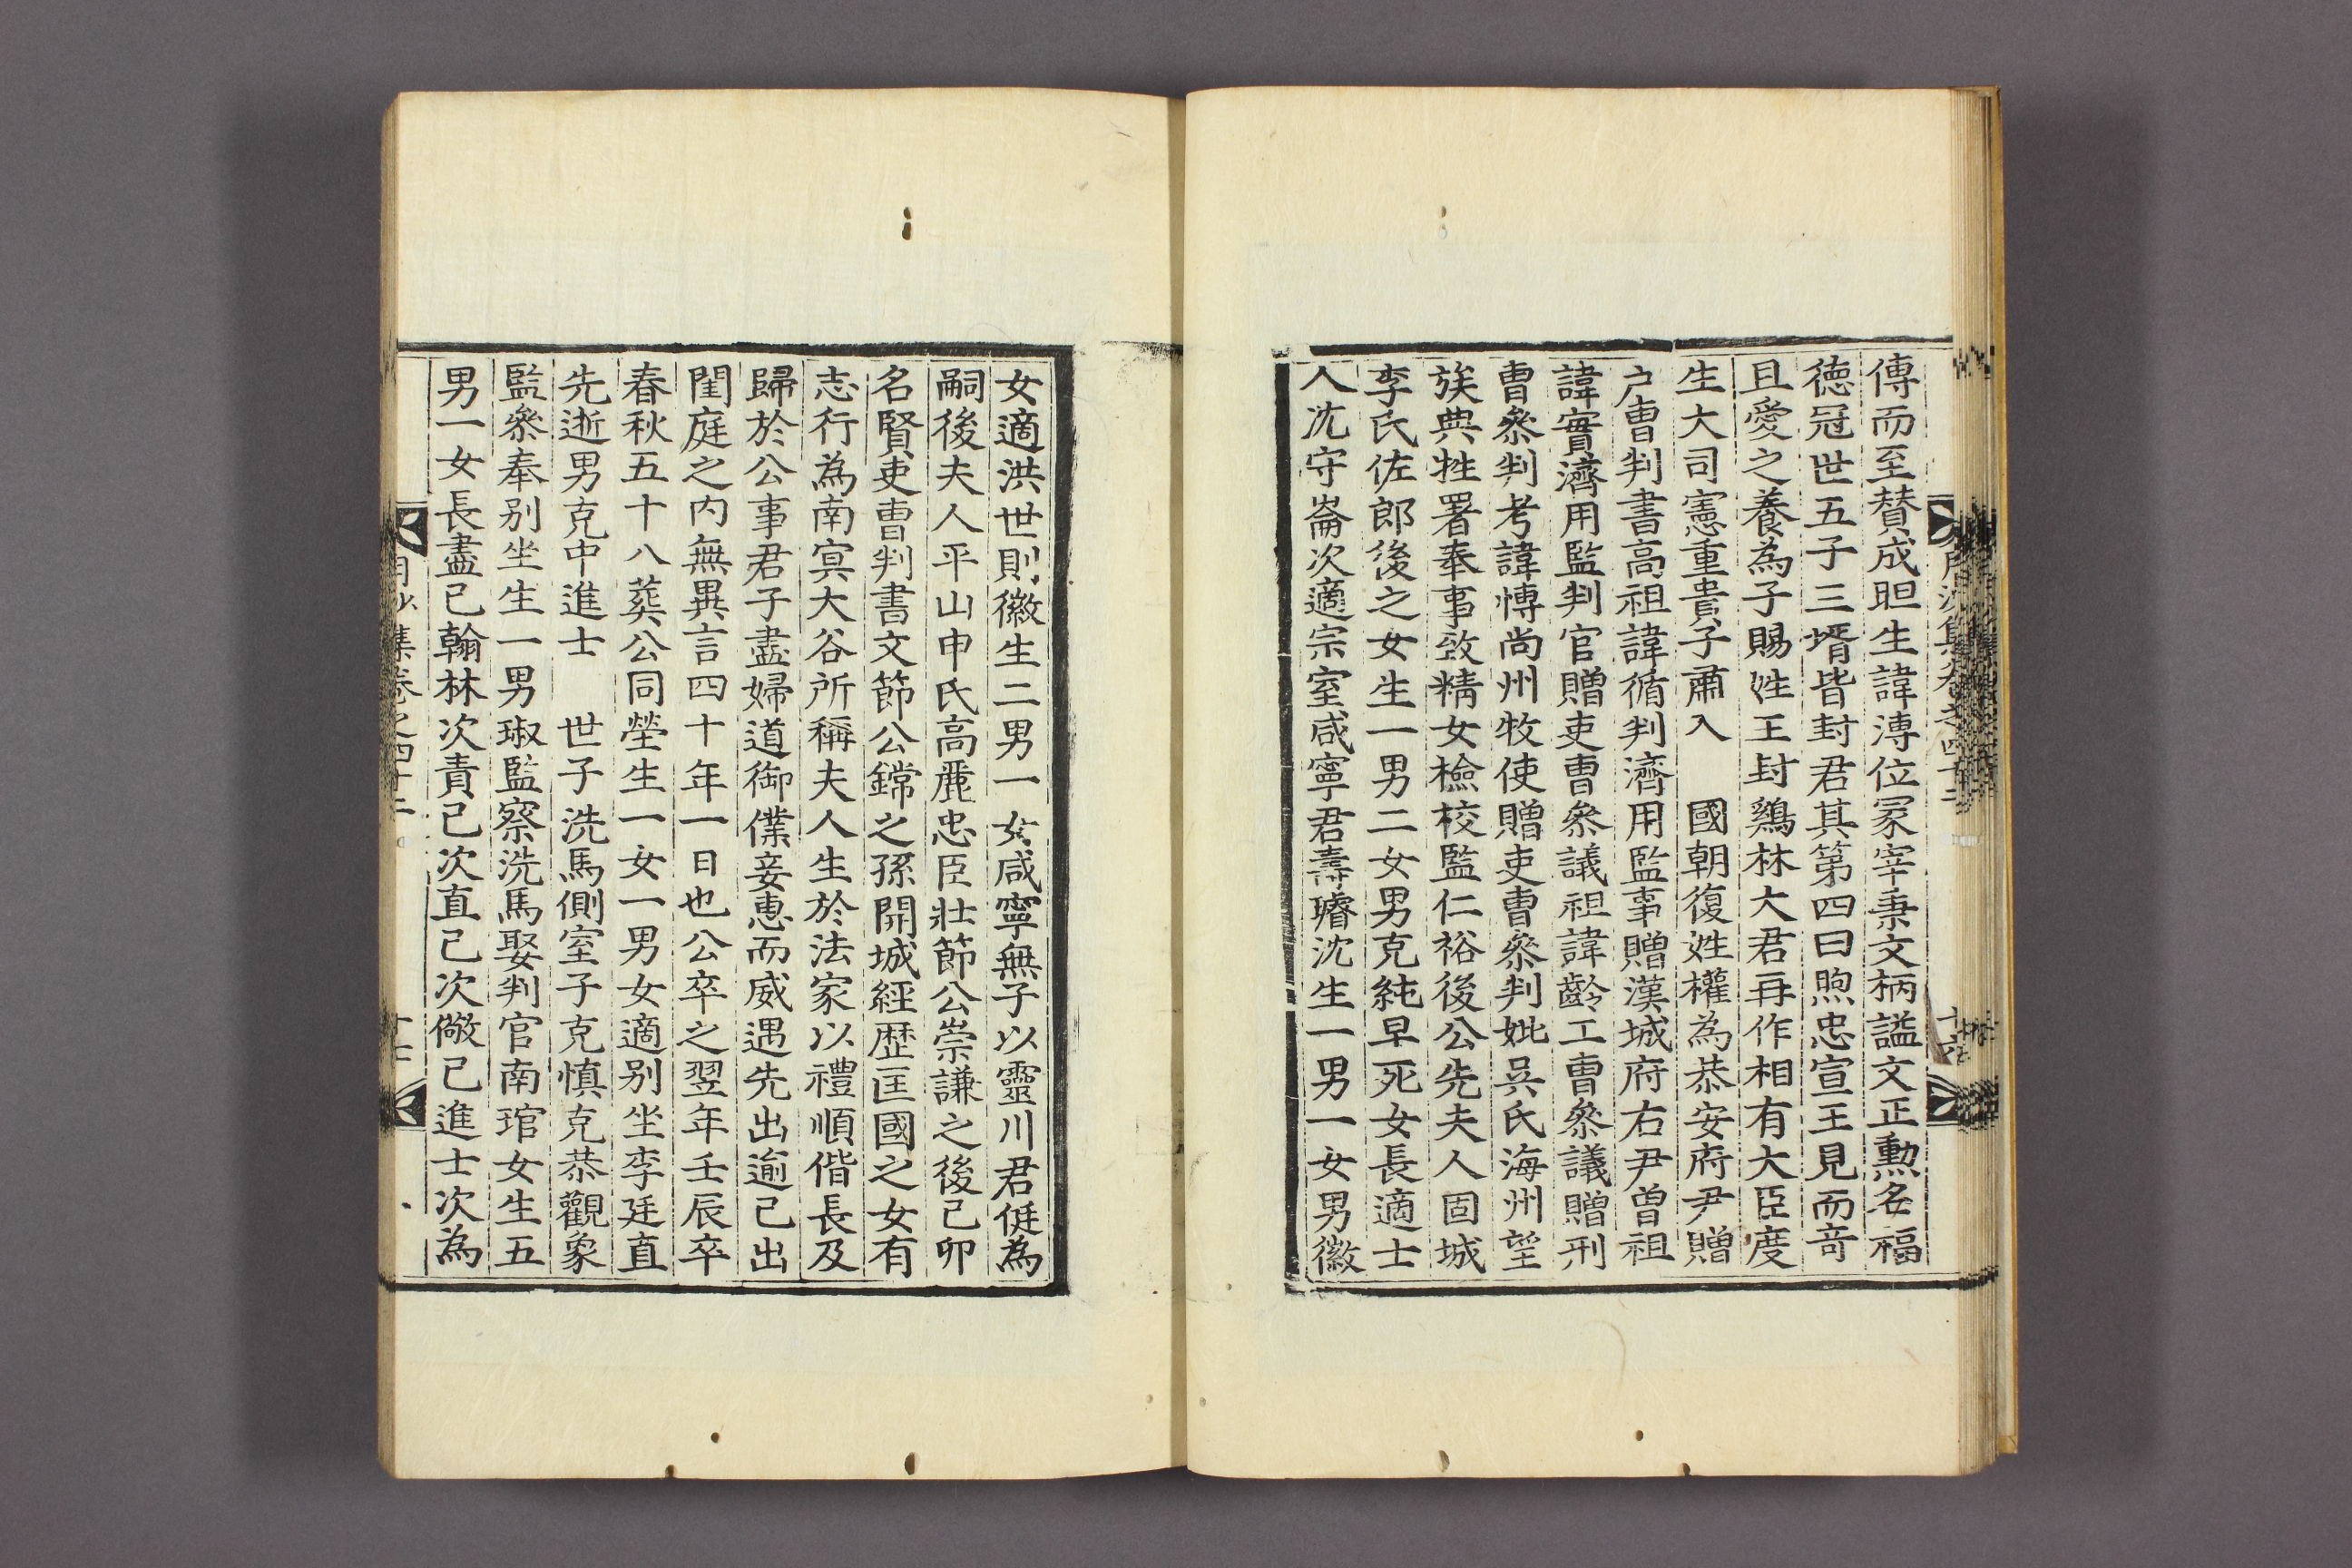 傳而至賛成䀚生諱溥位冢宰秉文柄諡文正勲名福
徳冠世五子三壻皆封君其第四曰煦忠宣王見而竒
且愛之養為子賜姓王封鷄林大君再作相有大臣度
生大司憲重貴子肅入　國朝復姓權為恭安府尹贈
户曺判書高祖諱循判濟用監事贈漢城府右尹曽祖
諱實濟用監判官贈吏曺叅議祖諱齡工曺叅議贈刑
曺叅判考諱愽尚州牧使贈吏曺叅判妣吳氏海州望
族典牲署奉事致精女檢校監仁裕後公先夫人固城
李氏佐郎後之女生一男二女男克純早死女長適士
人沈守崙次適宗室咸寧君壽𤩴沈生一男一女男徽
女適洪世則徽生二男一女咸寧無子以靈川君侹為
嗣後夫人平山申氏高麗忠臣壯節公崇謙之後己卯
名賢吏曺判書文節公鏛之孫開城經歴匡國之女有
志行為南㝠大谷所稱夫人生於法家以禮順偕長及
歸於公事君子盡婦道御僕妾惠而威遇先出逾己出
閨庭之内無異言四十年一日也公卒之翌年壬辰卒
春秋五十八葬公同塋生一女一男女適别坐李廷直
先逝男克中進士　世子洗馬側室子克慎克恭觀象
監叅奉别坐生一男琡監察洗馬娶判官南琯女生五
男一女長盡己翰林次責己次直己次儆己進士次為
集卷之四十二